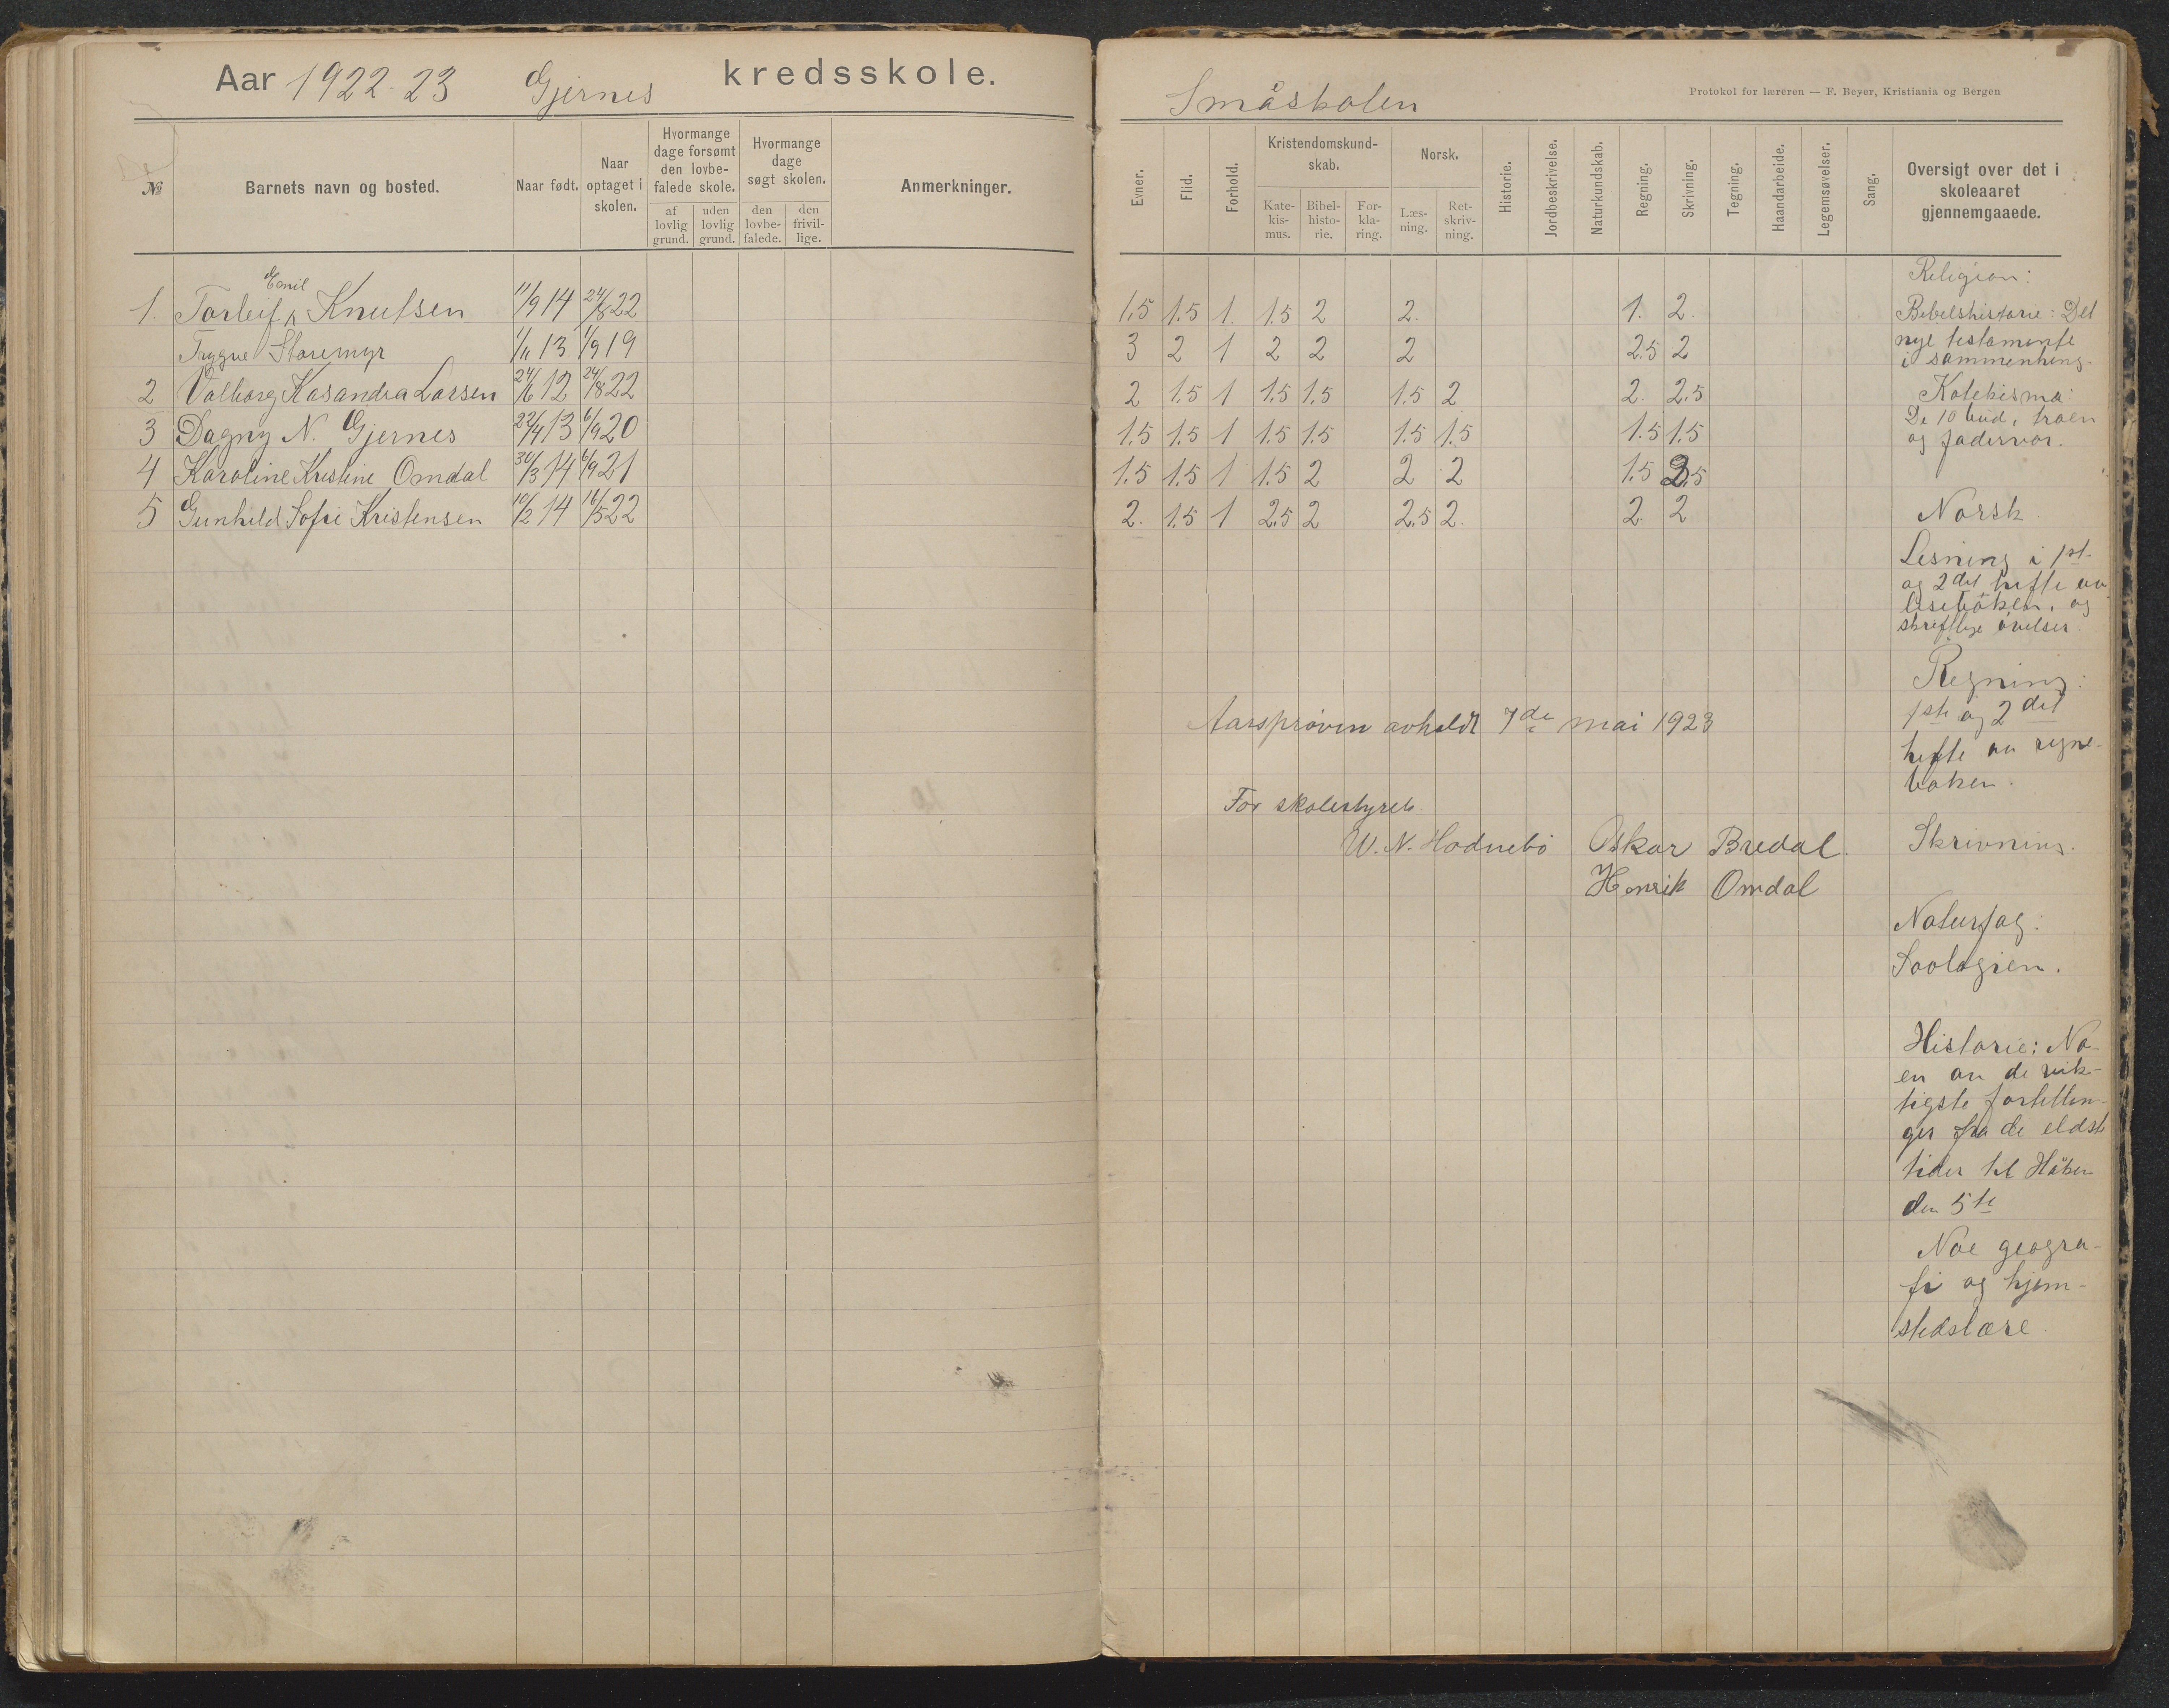 Aar 1922-23 Gjernes kredsskole.
№ Barnets navn og bosted. Naar født. Naar optaget i skolen. Hvormange dage forsømt den lovbefalede skole. af lovlig grund. uden lovlig grund. Hvormange dage søgt skolen. den lovbefalede. den frivillige. Anmerkninger.
Emil
1. Torleif Knutsen 11/9 14 24/8 22
Trygve Staremyr 1/11 13 1/9 19
2 Valborg Kasandra Larsen 24/6 12 24/8 22
3 Dagny N. Gjernes 22/4 13 6/9 20
4 Karoline Kristine Omdal 30/3 14 6/9 21
5 Gunhild Sofie Kristensen 10/2 14 16/5 22
Småskolen
Protokol for læreren — F. Beyer, Kristiania og Bergen
Evner. Flid. Forhold. Kristendomskundskab. Katekismus. Bibelhistorie. Forklaring. Norsk. Læsning. Retskrivning. Historie. Jordbeskrivelse. Naturkundskab. Regning. Skrivning. Tegning. Haandarbeide. Legemsøvelser. Sang. Oversigt over det i skoleaaret gjennemgaaede.
1.5 1.5 1. 1.5 2 2. 1. 2.
3 2 1 2 2 2 2.5 2
2 1.5 1 1.5 1.5 1.5 2 2. 2.5
1.5 1.5 1 1.5 1.5 1.5 1.5 1.5 1.5
1.5 1.5 1 1.5 2 2 2 1.5 2.5
2. 1.5 1 2.5 2 2.5 2. 2. 2
Aarsprøven avholdt 7de mai 1923
For skolestyret
W. N. Hodnebø Oskar Bredal.
Henrik Omdal
Religion:
Bibelshistorie: Det
nye testamente
i sammenheng.
Katekisma:
De 10 bud, troen
og fadervor.
Norsk.
Lesning i 1st
og 2det hefte av
leseboken, og
skriftlige øvelser.
Regning:
1ste og 2det
hefte av regne-
boken.
Skrivning.
Naturfag:
Soologien.
Historie: No-
en av de vik-
tigste fortellin-
ger fra de eldste
tider til Håkon
den 5te
Noe geogra-
fi og hjem-
stedslære.